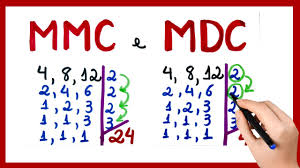 MMC e MDC
4, 8, 12 2
2, 4, 6 2
1, 2, 3 2
1, 1, 3 3
1, 1, 1 24
4, 8, 12 2
2, 4, 6 2
1, 2, 3 2
1, 1, 3 3
1, 1, 1 24